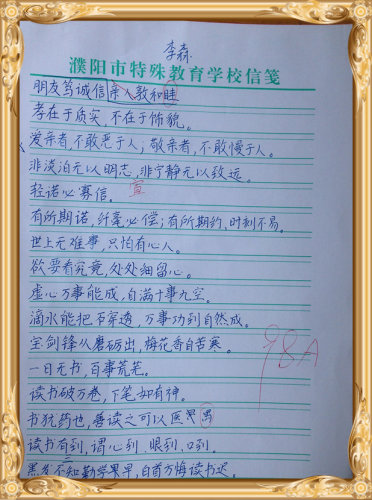 李森
濮阳市特殊教育学校信笺
朋友笃诚信亲人敦和睦
孝在于质实，不在于饰貌。
爱亲者，不敢恶于人；敬亲者，不敢慢于人。
非淡泊无以明志，非宁静无以致远。
轻诺必寡信。
有所期诺，纤毫必偿；有所期约，时刻不易。
世上无难事，只怕有心人。
欲要看究竟，处处细留心。
虚心万事能成，自满十事九空。
滴水能把石穿透，万事功到自然成。
宝剑锋从磨砺出，梅花香自苦寒。
一日无书，百事荒芜。
读书破万卷，下笔如有神。
书犹药也，善读之可以医愚
读书有到，谓心到，眼到，口到。
三
黑发不知勤学早，白首方悔读书迟。
98A